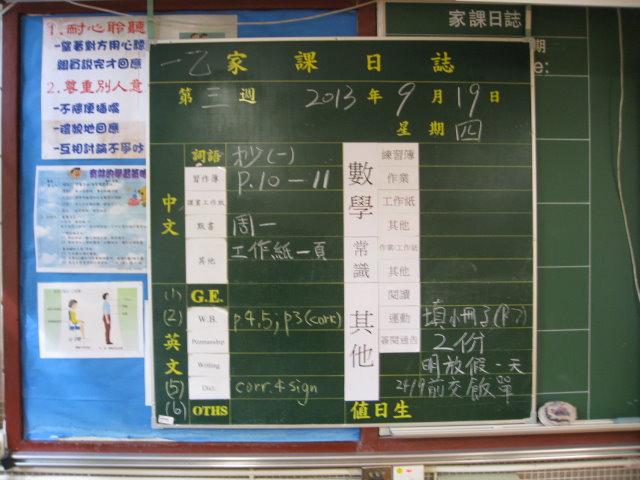 1.耐心聆聽
-望著對方用心聽
組員說完才回應
2.尊重別人意
-不隨便插嘴
-禮貌地回應
-互相討論不爭吵
家課日誌
期
e:
一乙 家課日誌
第三週 2013年9月19日
星期四
中文
詞語 抄(一)
習作簿 P.10—11
課業工作紙
默書 周一
其他 工作紙一頁
英文
(1) G.E.
(2) W.B. p4,5; p3(corr)
Penmanship
Writing
(5) Dict. corr. & sign
(6) OTHS
數學
練習簿
作業
工作紙
其他
常識
作業/工作紙
其他
其他
閱讀
運動 填小冊子(P.7)
簽閱通告 2份
明放假一天
24/9前交飯單
值日生